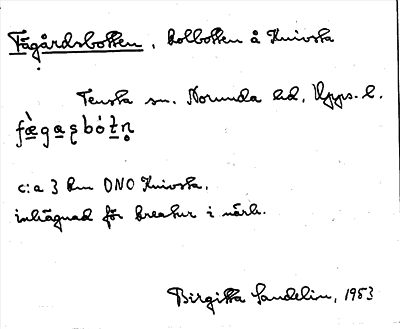 Fägårdsbotten, kolbotten å Knivsta
Tensta sn. Norunda hd, Upps. l.
fæ̀gaʂbótn̥
c:a 3 km ONO Knivsta.
inhägnad för kreatur i närh.
Birgitta Sandelin, 1953